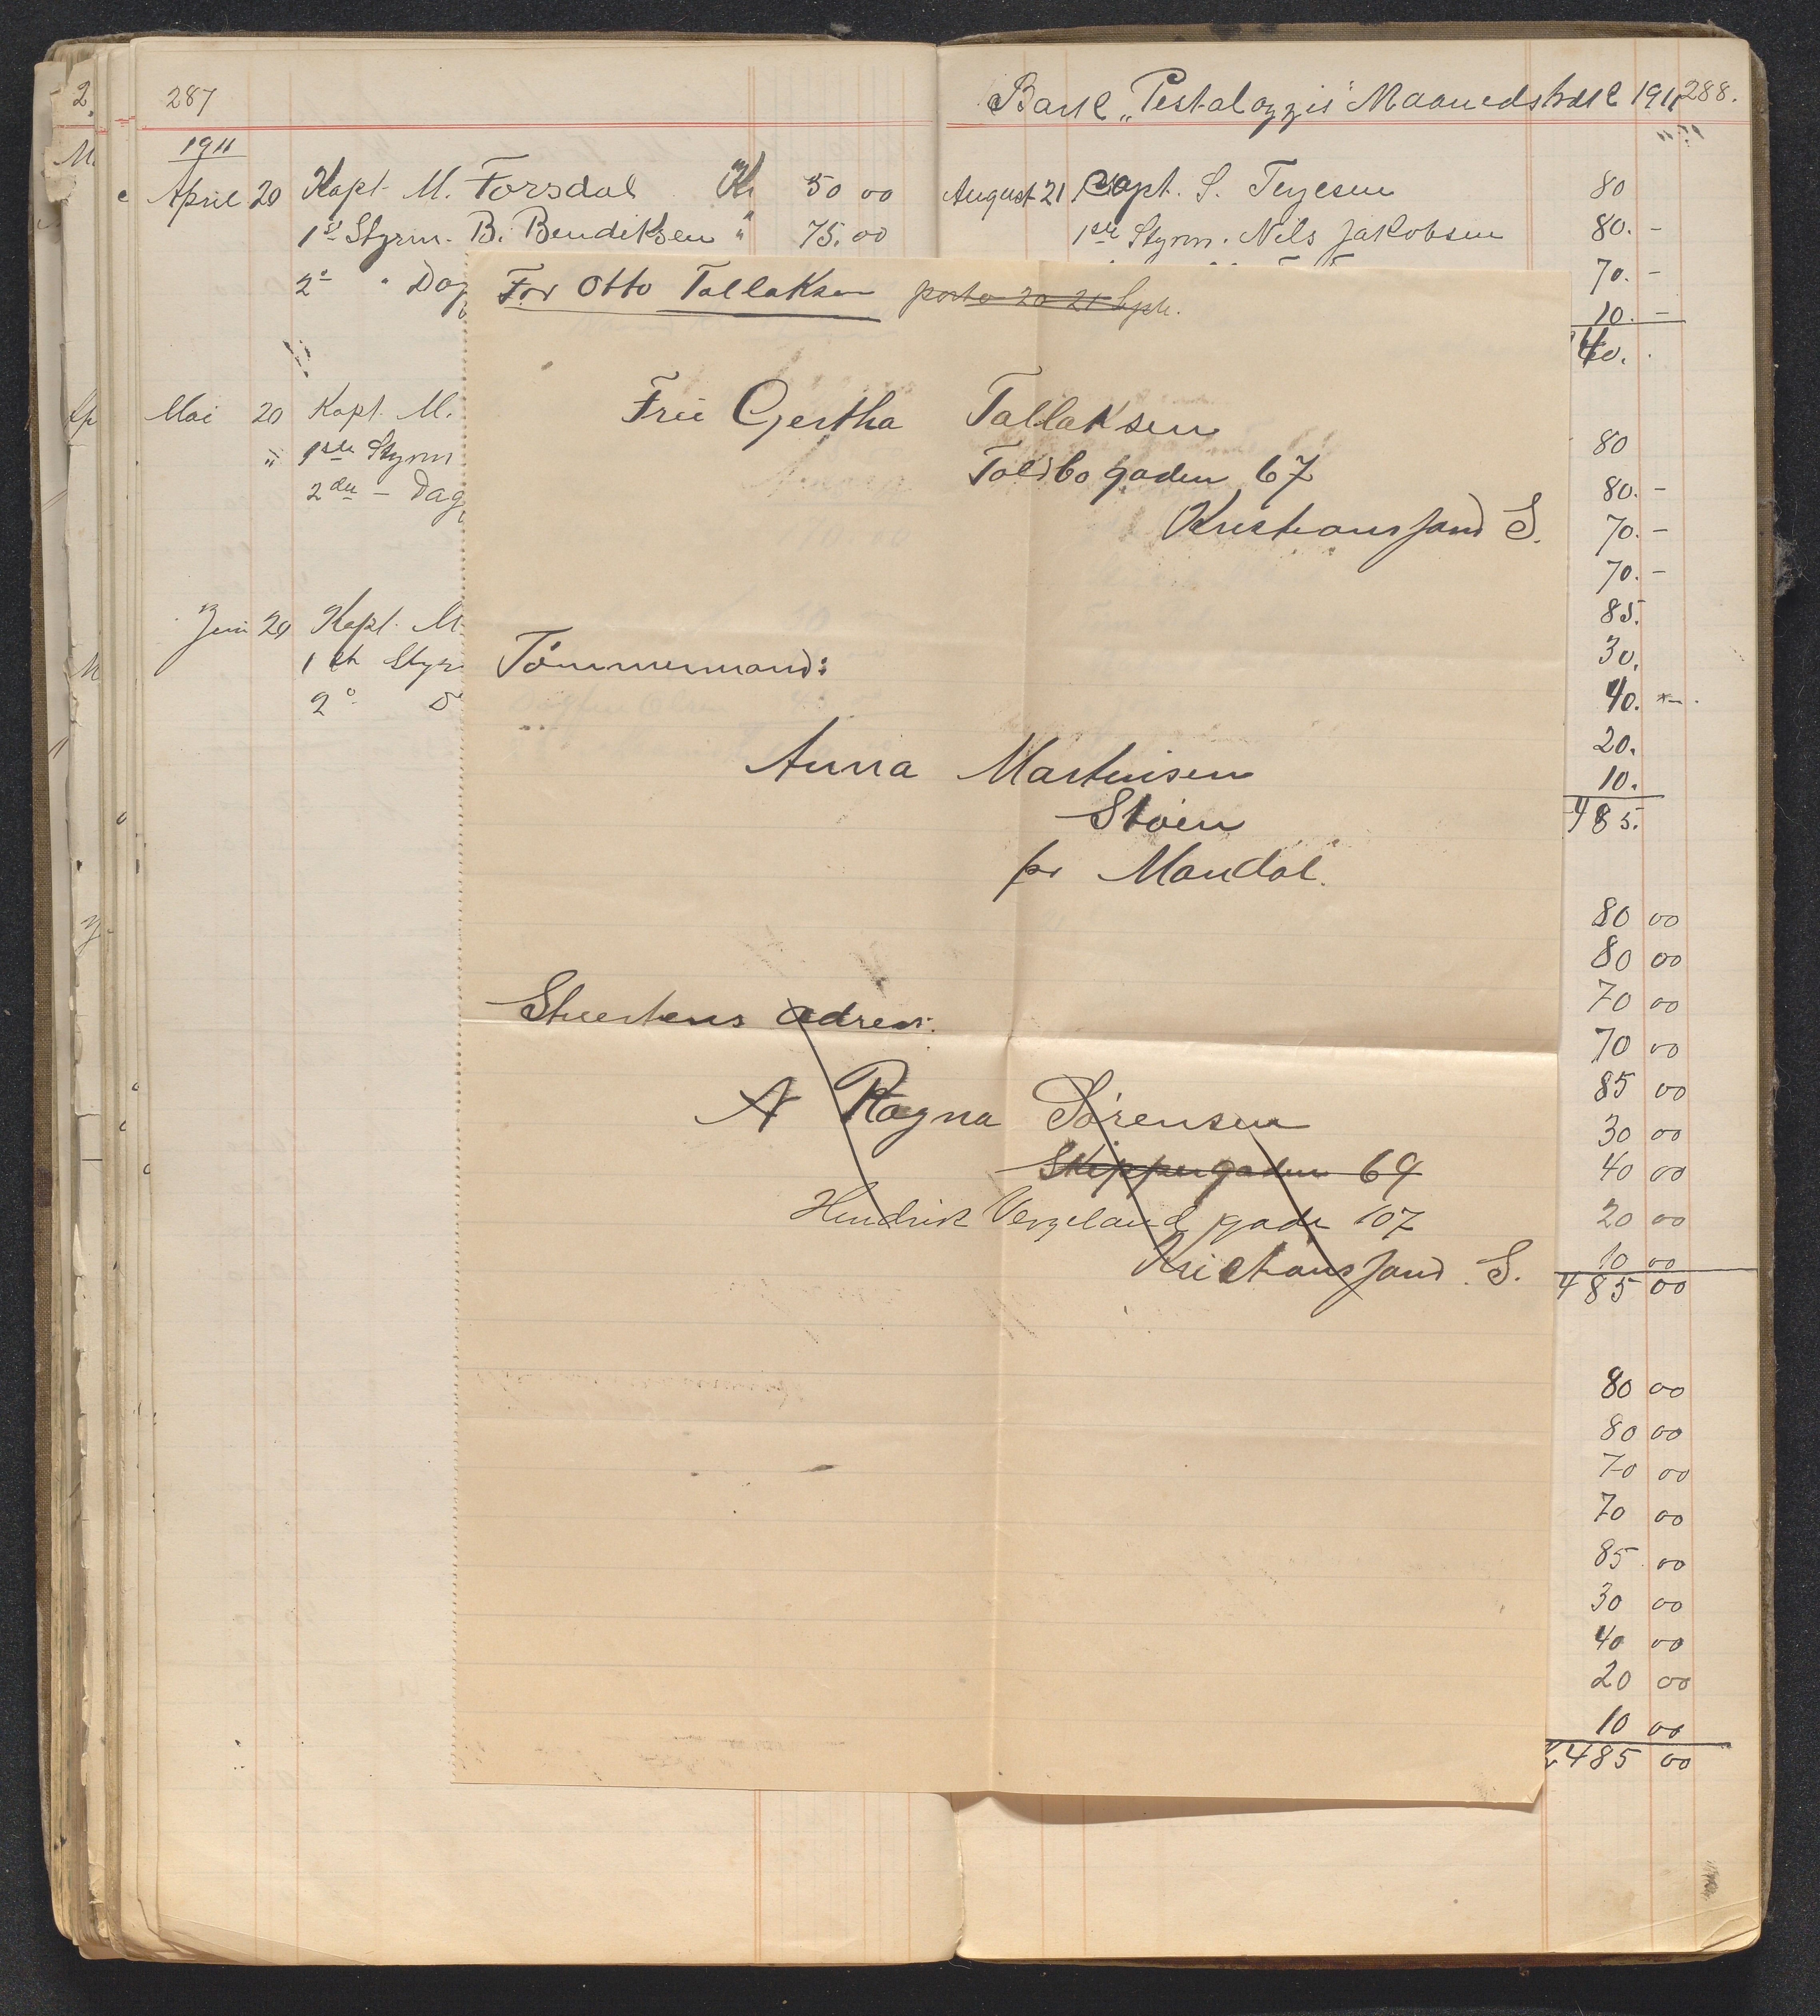 287
1911
April 20 Kapt. M. Torsdal Kr 50 00
1ste Styrm. B. Bendiksen " 75.00
2° " Dag
Mai 20 Kapt. M.
" 1ste Styrm
2den - Dag
Juni 20 Kapt. M
1ste Styr
2° D
Bark „Pestalozzis" Maanedstræk 1911 288.
August 21 Capt. S. Terjesen 80
1ste Styrm. Nils Jakobsen 80. -
70. -
10. -
80
80. -
70. -
70. -
85.
30.
40. -
20.
10.
485.
80 00
80 00
70 00
70 00
85 00
30 00
40 00
20 00
10 00
485 00
80 00
80 00
70 00
70 00
85 00
30 00
40 00
20 00
10 00
485 00
For Otto Tallaksen porto 20 21 Sept.
Fru Gertha Tallaksen
Toldbogaden 67
Kristianssand S.
Tømmermand:
Anna Martinsen
Støen
pr Mandal.
Stuertens adress:
A Ragna Sørensen
Skippergaden 69
Hendrik Vergeland gade 107
Kristianssand S.